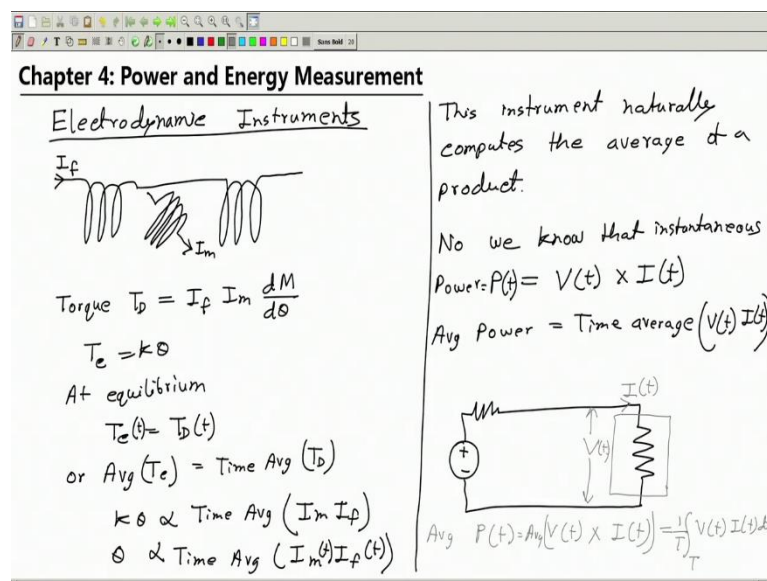 Sans Bold 20
Chapter 4: Power and Energy Measurement
Electrodynamic Instruments
I_f
I_m
Torque T_D = I_f I_m dM/dθ
T_e = kθ
At equilibrium
T_e(t) = T_D(t)
or Avg (T_e) = Time Avg (T_D)
kθ ∝ Time Avg (I_m I_f)
θ ∝ Time Avg (I_m(t) I_f(t))
This instrument naturally
computes the average of a
product.
No we know that instantaneous
Power = P(t) = V(t) × I(t)
Avg Power = Time average (V(t) I(t))
I(t)
+
V(t)
−
Avg P(t) = Avg (V(t) × I(t)) = 1/T ∫_T V(t) I(t) d